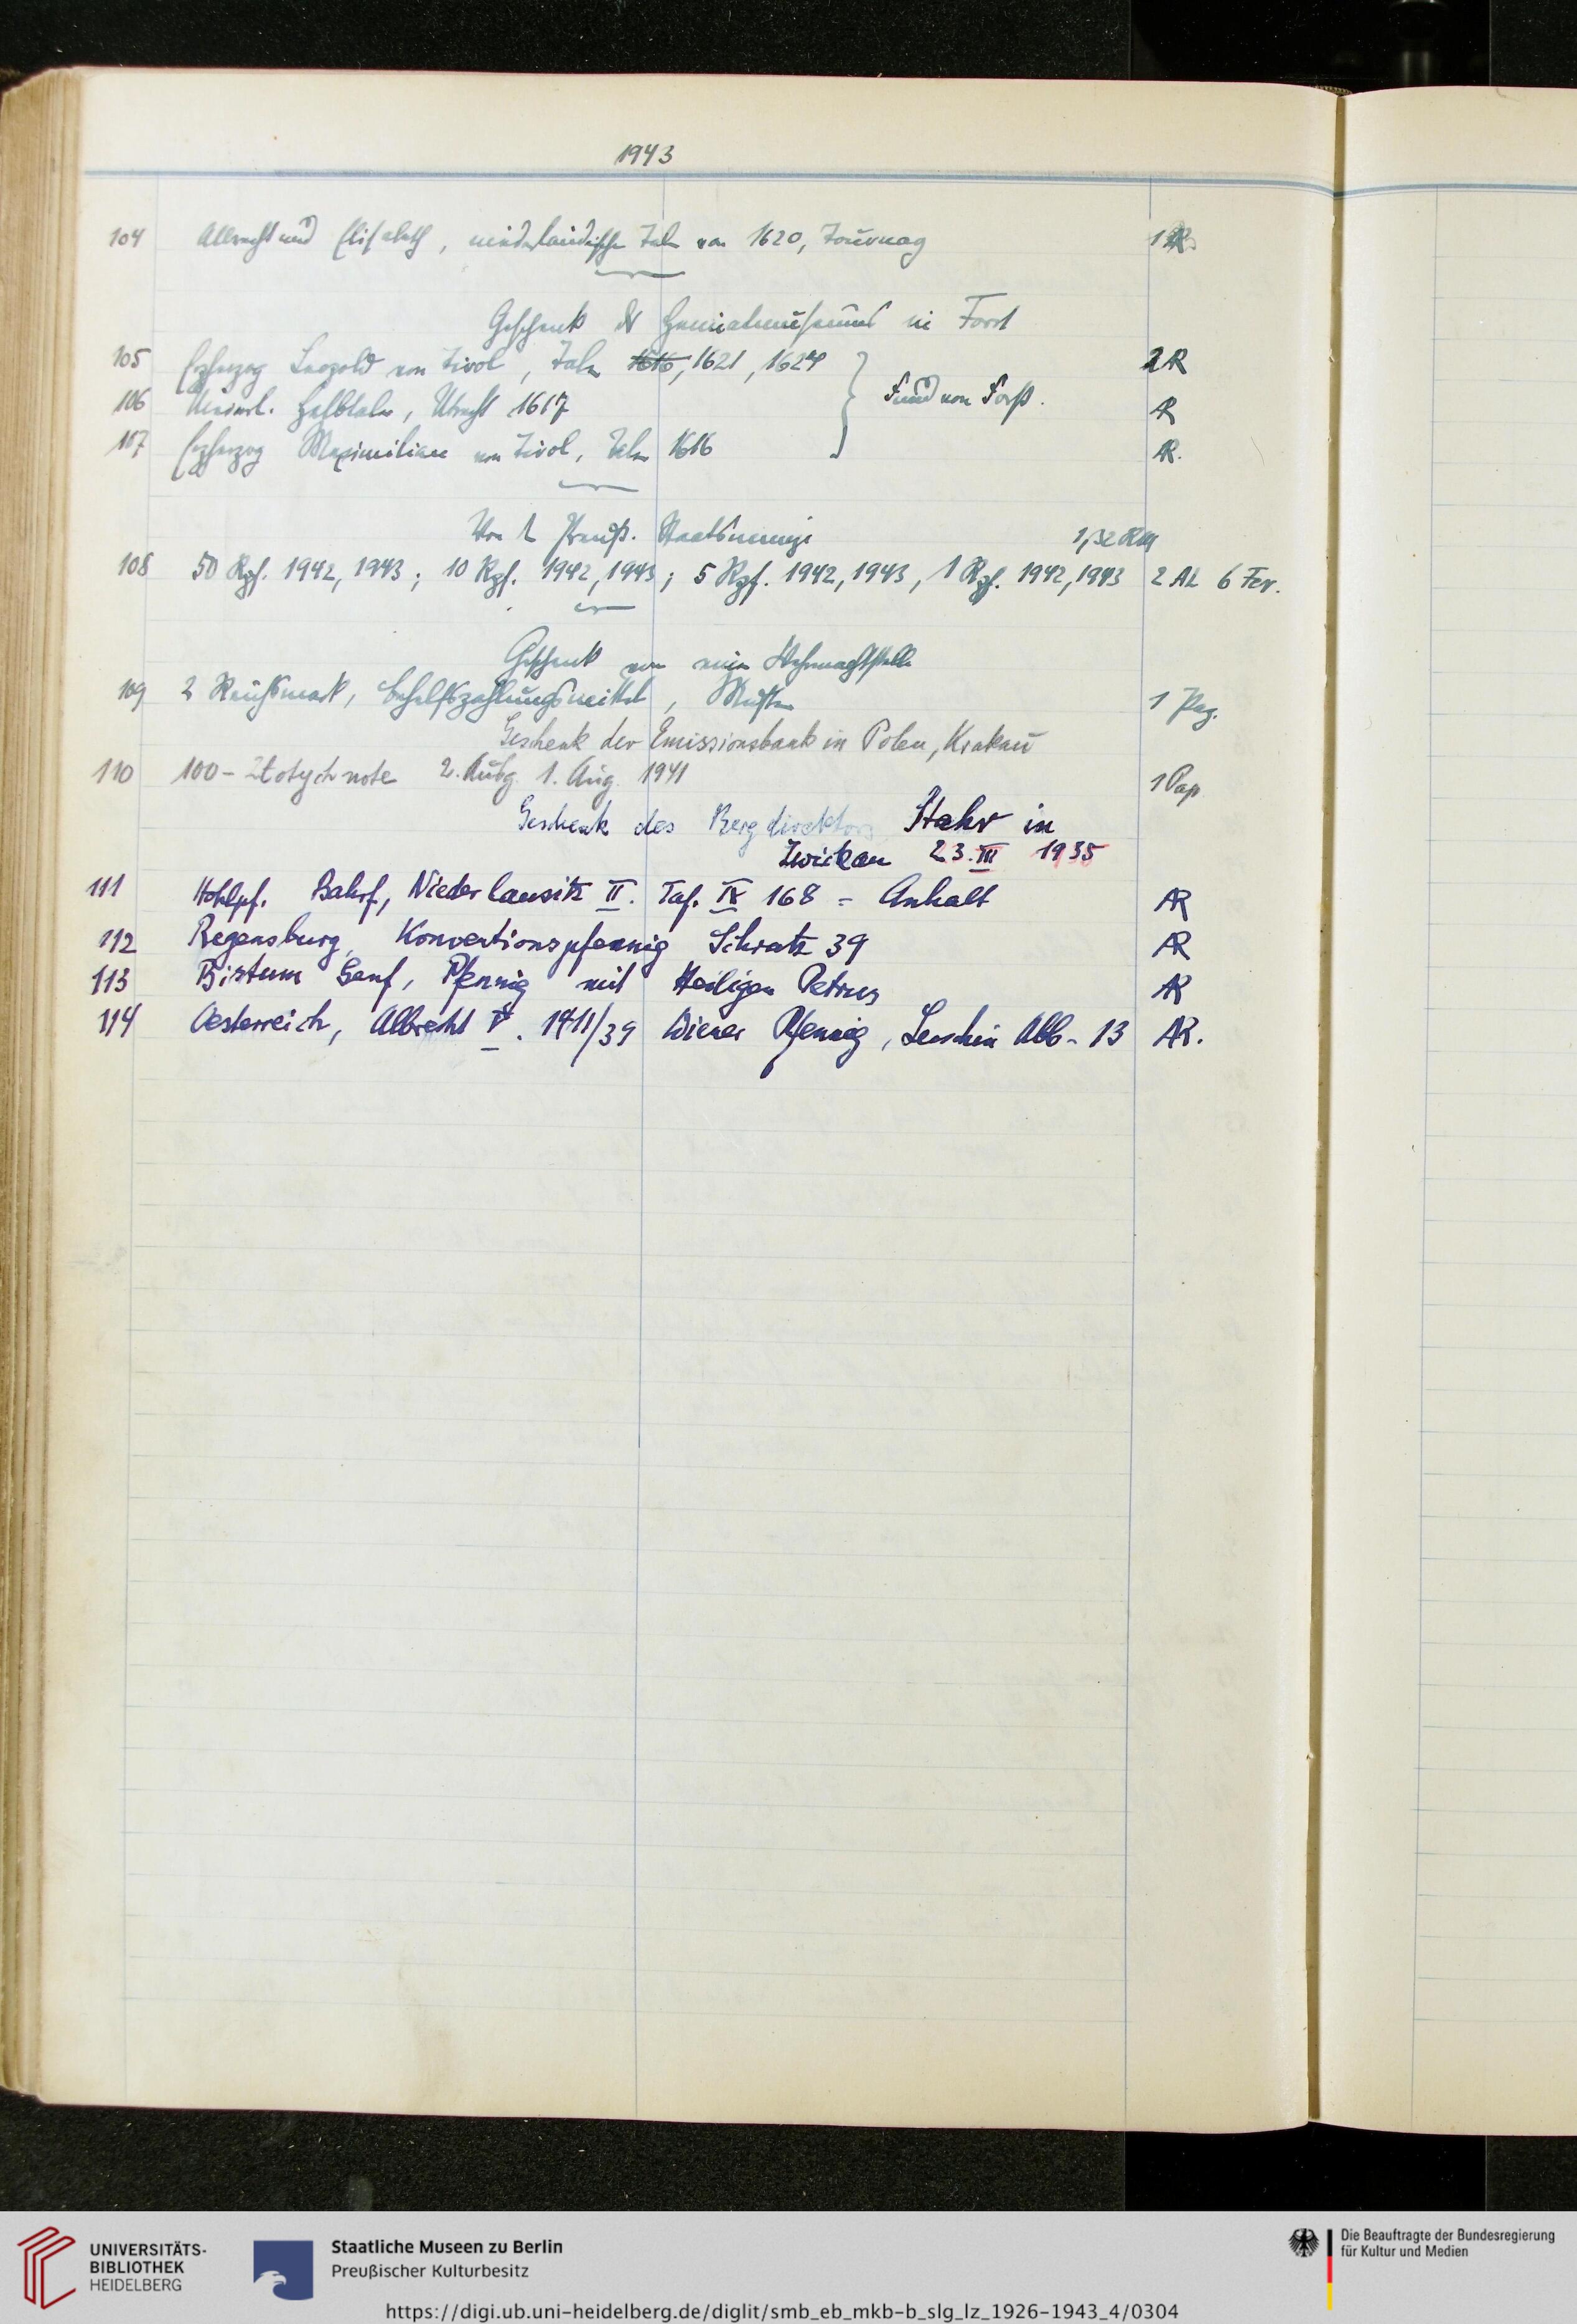 1943
104 Albrecht und Elisabeth, niederländische Taler von 1620, Tournay 1 AR
Geschenk des Heimatmuseums in Forst
105 Erzherzog Leopold von Tirol, Taler 1616, 1621, 1624 2 R
106 Niederl. Halbtaler, Utrecht 1617 Fund von Forst. R
107 Erzherzog Maximilian von Tirol, Taler 1616 AR.
Von d. Preuß. Staatsmünze 1,32 RM
108 50 Rpf. 1942, 1943; 10 Rpf. 1942, 1943; 5 Rpf. 1942, 1943, 1 Rpf. 1942, 1943 2 AL 6 Fer.
Geschenk von einer Wehrmachtstelle
109 2 Reichsmark, Behelfszahlungsmittel, Muster 1 Pap.
Geschenk der Emissionsbank in Polen, Krakau
110 100-Złotych note 2. Ausg. 1. Aug. 1941 1 Pap
Geschenk des Bergdirektors Stahr in
Zwickau 23. III 1935
111 Hohlpf. Bahrf, Niederlausitz II. Taf. IX 168 = Anhalt AR
112 Regensburg, Konventionspfennig Schratz 39 AR
113 Bistum Genf, Pfennig mit Heiligen Petrus AR
114 Oesterreich, Albrecht V. 1411/39 Wiener Pfennig, Luschin Abb. 13 AR.
UNIVERSITÄTS-
BIBLIOTHEK
HEIDELBERG
Staatliche Museen zu Berlin
Preußischer Kulturbesitz
Die Beauftragte der Bundesregierung
für Kultur und Medien
https://digi.ub.uni-heidelberg.de/diglit/smb_eb_mkb-b_slg_lz_1926-1943_4/0304